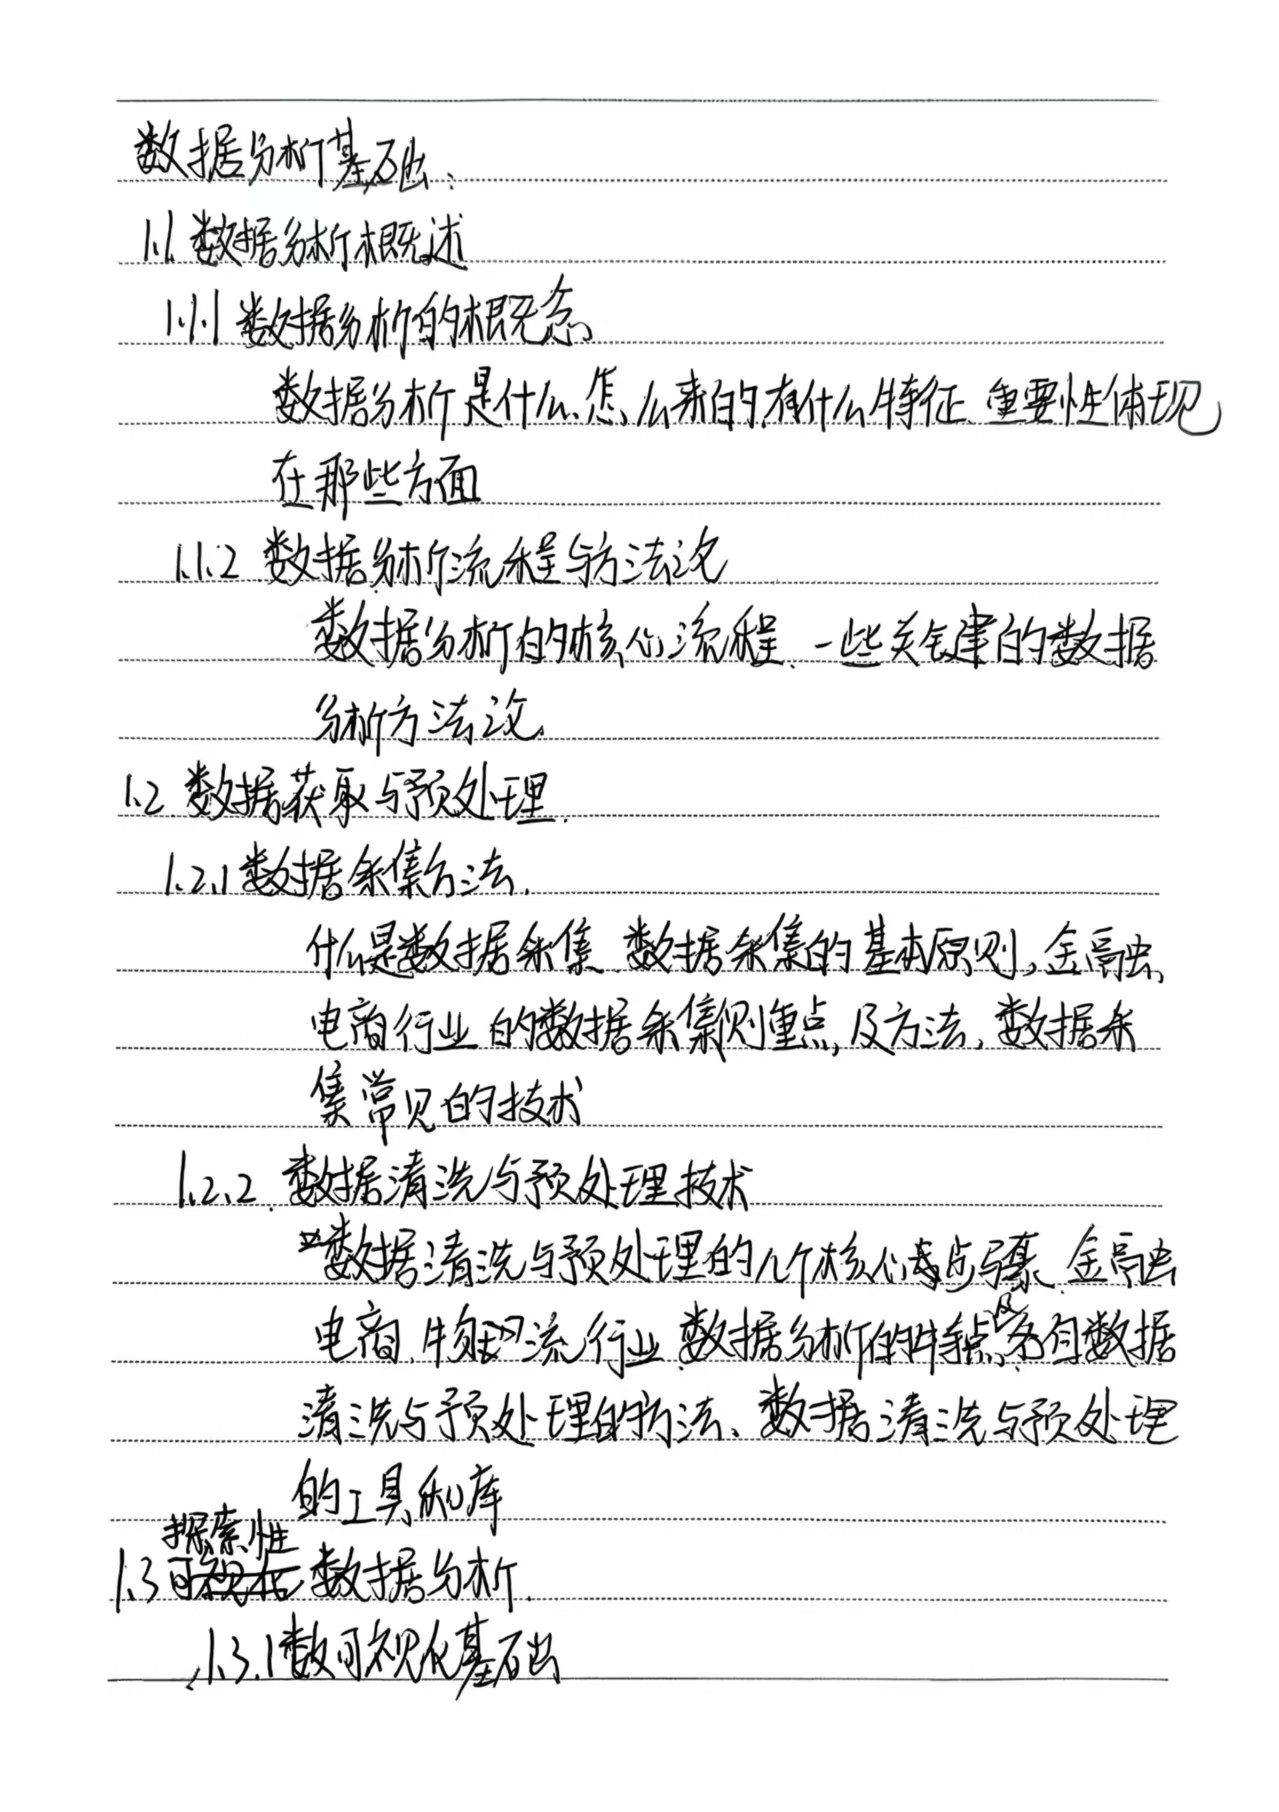 数据分析基础:
1.1 数据分析概述
1.1.1 数据分析的概念
数据分析是什么、怎么来的、有什么特征、重要性体现
在那些方面
1.1.2 数据分析流程与方法论
数据分析的核心流程、一些关键的数据
分析方法论
1.2 数据获取与预处理
1.2.1 数据采集方法
什么是数据采集、数据采集的基本原则,金融、
电商行业的数据采集侧重点,及方法、数据采
集常见的技术
1.2.2 数据清洗与预处理技术
数据清洗与预处理的几个核心步骤、金融
电商、物流行业数据分析的特点、及各自数据
清洗与预处理的方法、数据清洗与预处理
的工具和库
探索性
1.3 可视化数据分析.
1.3.1 数可视化基础